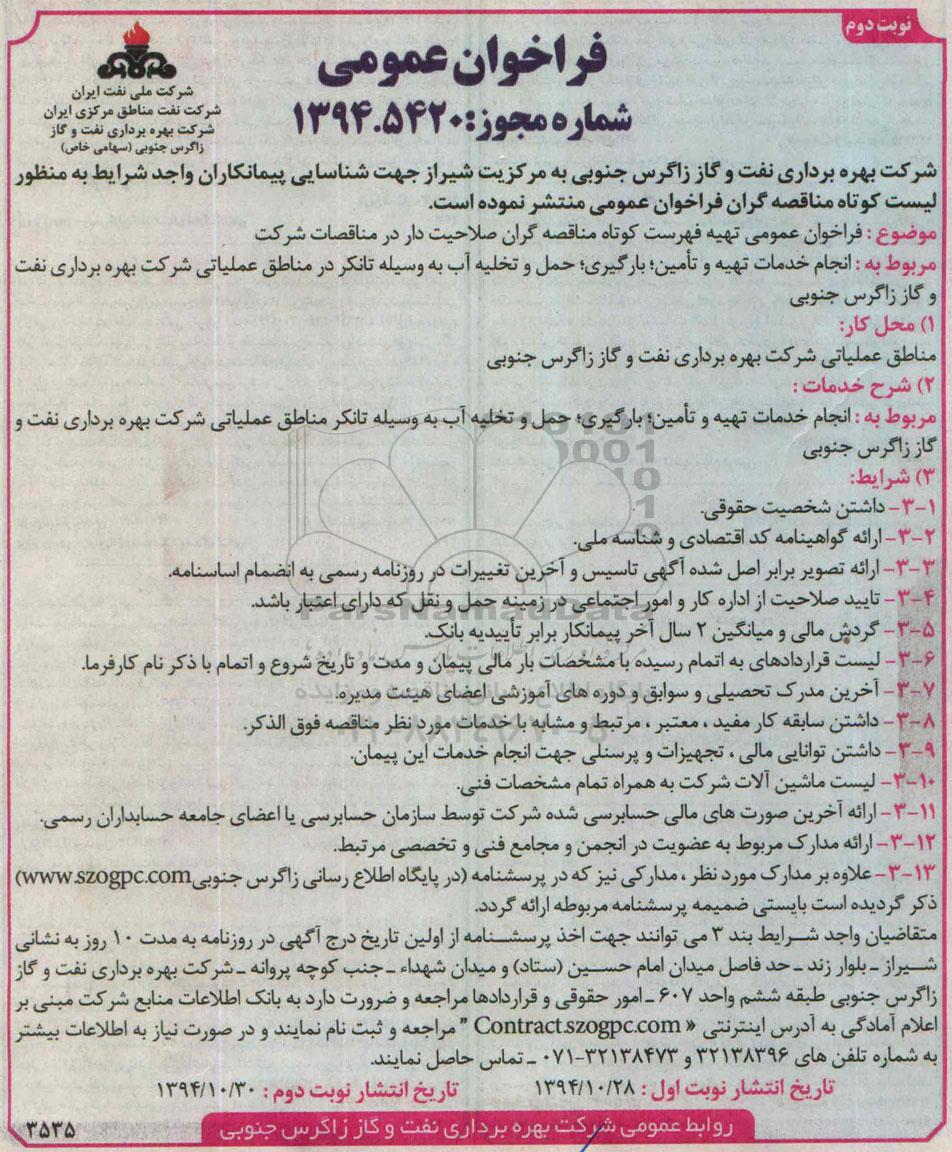 نوبت دوم
شرکت ملی نفت ایران
شرکت نفت مناطق مرکزی ایران
شرکت بهره برداری نفت و گاز
زاگرس جنوبی (سهامی خاص)
فراخوان عمومی
شماره مجوز: ۱۳۹۴.۵۴۲۰
شرکت بهره برداری نفت و گاز زاگرس جنوبی به مرکزیت شیراز جهت شناسایی پیمانکاران واجد شرایط به منظور
لیست کوتاه مناقصه گران فراخوان عمومی منتشر نموده است.
موضوع : فراخوان عمومی تهیه فهرست کوتاه مناقصه گران صلاحیت دار در مناقصات شرکت
مربوط به : انجام خدمات تهیه و تأمین؛ بارگیری؛ حمل و تخلیه آب به وسیله تانکر در مناطق عملیاتی شرکت بهره برداری نفت
و گاز زاگرس جنوبی
۱) محل کار:
مناطق عملیاتی شرکت بهره برداری نفت و گاز زاگرس جنوبی
۲) شرح خدمات :
مربوط به : انجام خدمات تهیه و تأمین؛ بارگیری؛ حمل و تخلیه آب به وسیله تانکر مناطق عملیاتی شرکت بهره برداری نفت و
گاز زاگرس جنوبی
۳) شرایط:
۳-۱- داشتن شخصیت حقوقی.
۳-۲- ارائه گواهینامه کد اقتصادی و شناسه ملی.
۳-۳- ارائه تصویر برابر اصل شده آگهی تاسیس و آخرین تغییرات در روزنامه رسمی به انضمام اساسنامه.
۳-۴- تایید صلاحیت از اداره کار و امور اجتماعی در زمینه حمل و نقل که دارای اعتبار باشد.
۳-۵- گردش مالی و میانگین ۲ سال آخر پیمانکار برابر تأییدیه بانک.
۳-۶- لیست قراردادهای به اتمام رسیده با مشخصات بار مالی پیمان و مدت و تاریخ شروع و اتمام با ذکر نام کارفرما.
۳-۷- آخرین مدرک تحصیلی و سوابق و دوره های آموزشی اعضای هیئت مدیره.
۳-۸- داشتن سابقه کار مفید ، معتبر ، مرتبط و مشابه با خدمات مورد نظر مناقصه فوق الذکر.
۳-۹- داشتن توانایی مالی ، تجهیزات و پرسنلی جهت انجام خدمات این پیمان.
۳-۱۰- لیست ماشین آلات شرکت به همراه تمام مشخصات فنی.
۳-۱۱- ارائه آخرین صورت های مالی حسابرسی شده شرکت توسط سازمان حسابرسی یا اعضای جامعه حسابداران رسمی.
۳-۱۲- ارائه مدارک مربوط به عضویت در انجمن و مجامع فنی و تخصصی مرتبط.
۳-۱۳- علاوه بر مدارک مورد نظر ، مدارکی نیز که در پرسشنامه (در پایگاه اطلاع رسانی زاگرس جنوبی www.szogpc.com)
ذکر گردیده است بایستی ضمیمه پرسشنامه مربوطه ارائه گردد.
متقاضیان واجد شرایط بند ۳ می توانند جهت اخذ پرسشنامه از اولین تاریخ درج آگهی در روزنامه به مدت ۱۰ روز به نشانی
شیراز ـ بلوار زند ـ حد فاصل میدان امام حسین (ستاد) و میدان شهداء ـ جنب کوچه پروانه ـ شرکت بهره برداری نفت و گاز
زاگرس جنوبی طبقه ششم واحد ۶۰۷ ـ امور حقوقی و قراردادها مراجعه و ضرورت دارد به بانک اطلاعات منابع شرکت مبنی بر
اعلام آمادگی به آدرس اینترنتی « Contract.szogpc.com ” مراجعه و ثبت نام نمایند و در صورت نیاز به اطلاعات بیشتر
به شماره تلفن های ۳۲۱۳۸۳۹۶ و ۳۲۱۳۸۴۷۳-۰۷۱ ـ تماس حاصل نمایند.
تاریخ انتشار نوبت اول : ۱۳۹۴/۱۰/۲۸ تاریخ انتشار نوبت دوم : ۱۳۹۴/۱۰/۳۰
روابط عمومی شرکت بهره برداری نفت و گاز زاگرس جنوبی
۳۵۳۵
ParsNamadData